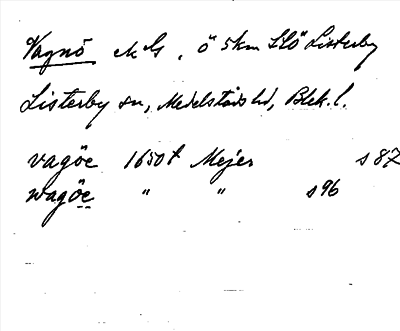 Vagnö McG, ö 5km SSÖ Listerby
Listerby sn, Medelstads hd, Blek. l.
vagöe 1650t Mejer s 87
wagöe " " s 96